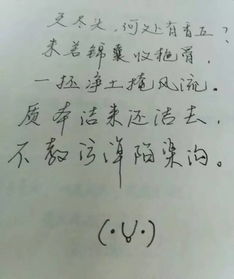 天尽头，何处有香丘？
未若锦囊收艳骨，
一抔净土掩风流。
质本洁来还洁去，
不教污淖陷渠沟。